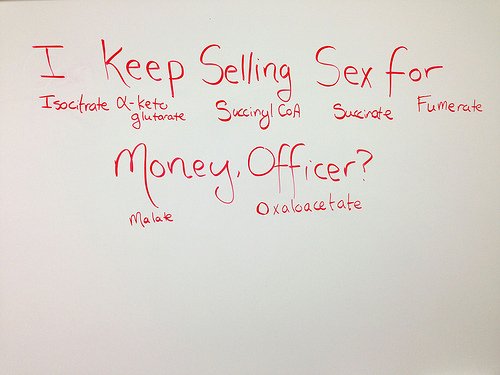 I Keep Selling Sex for
Isocitrate α-keto Succinyl CoA Succinate Fumerate
glutarate
Money, Officer?
Malate Oxaloacetate